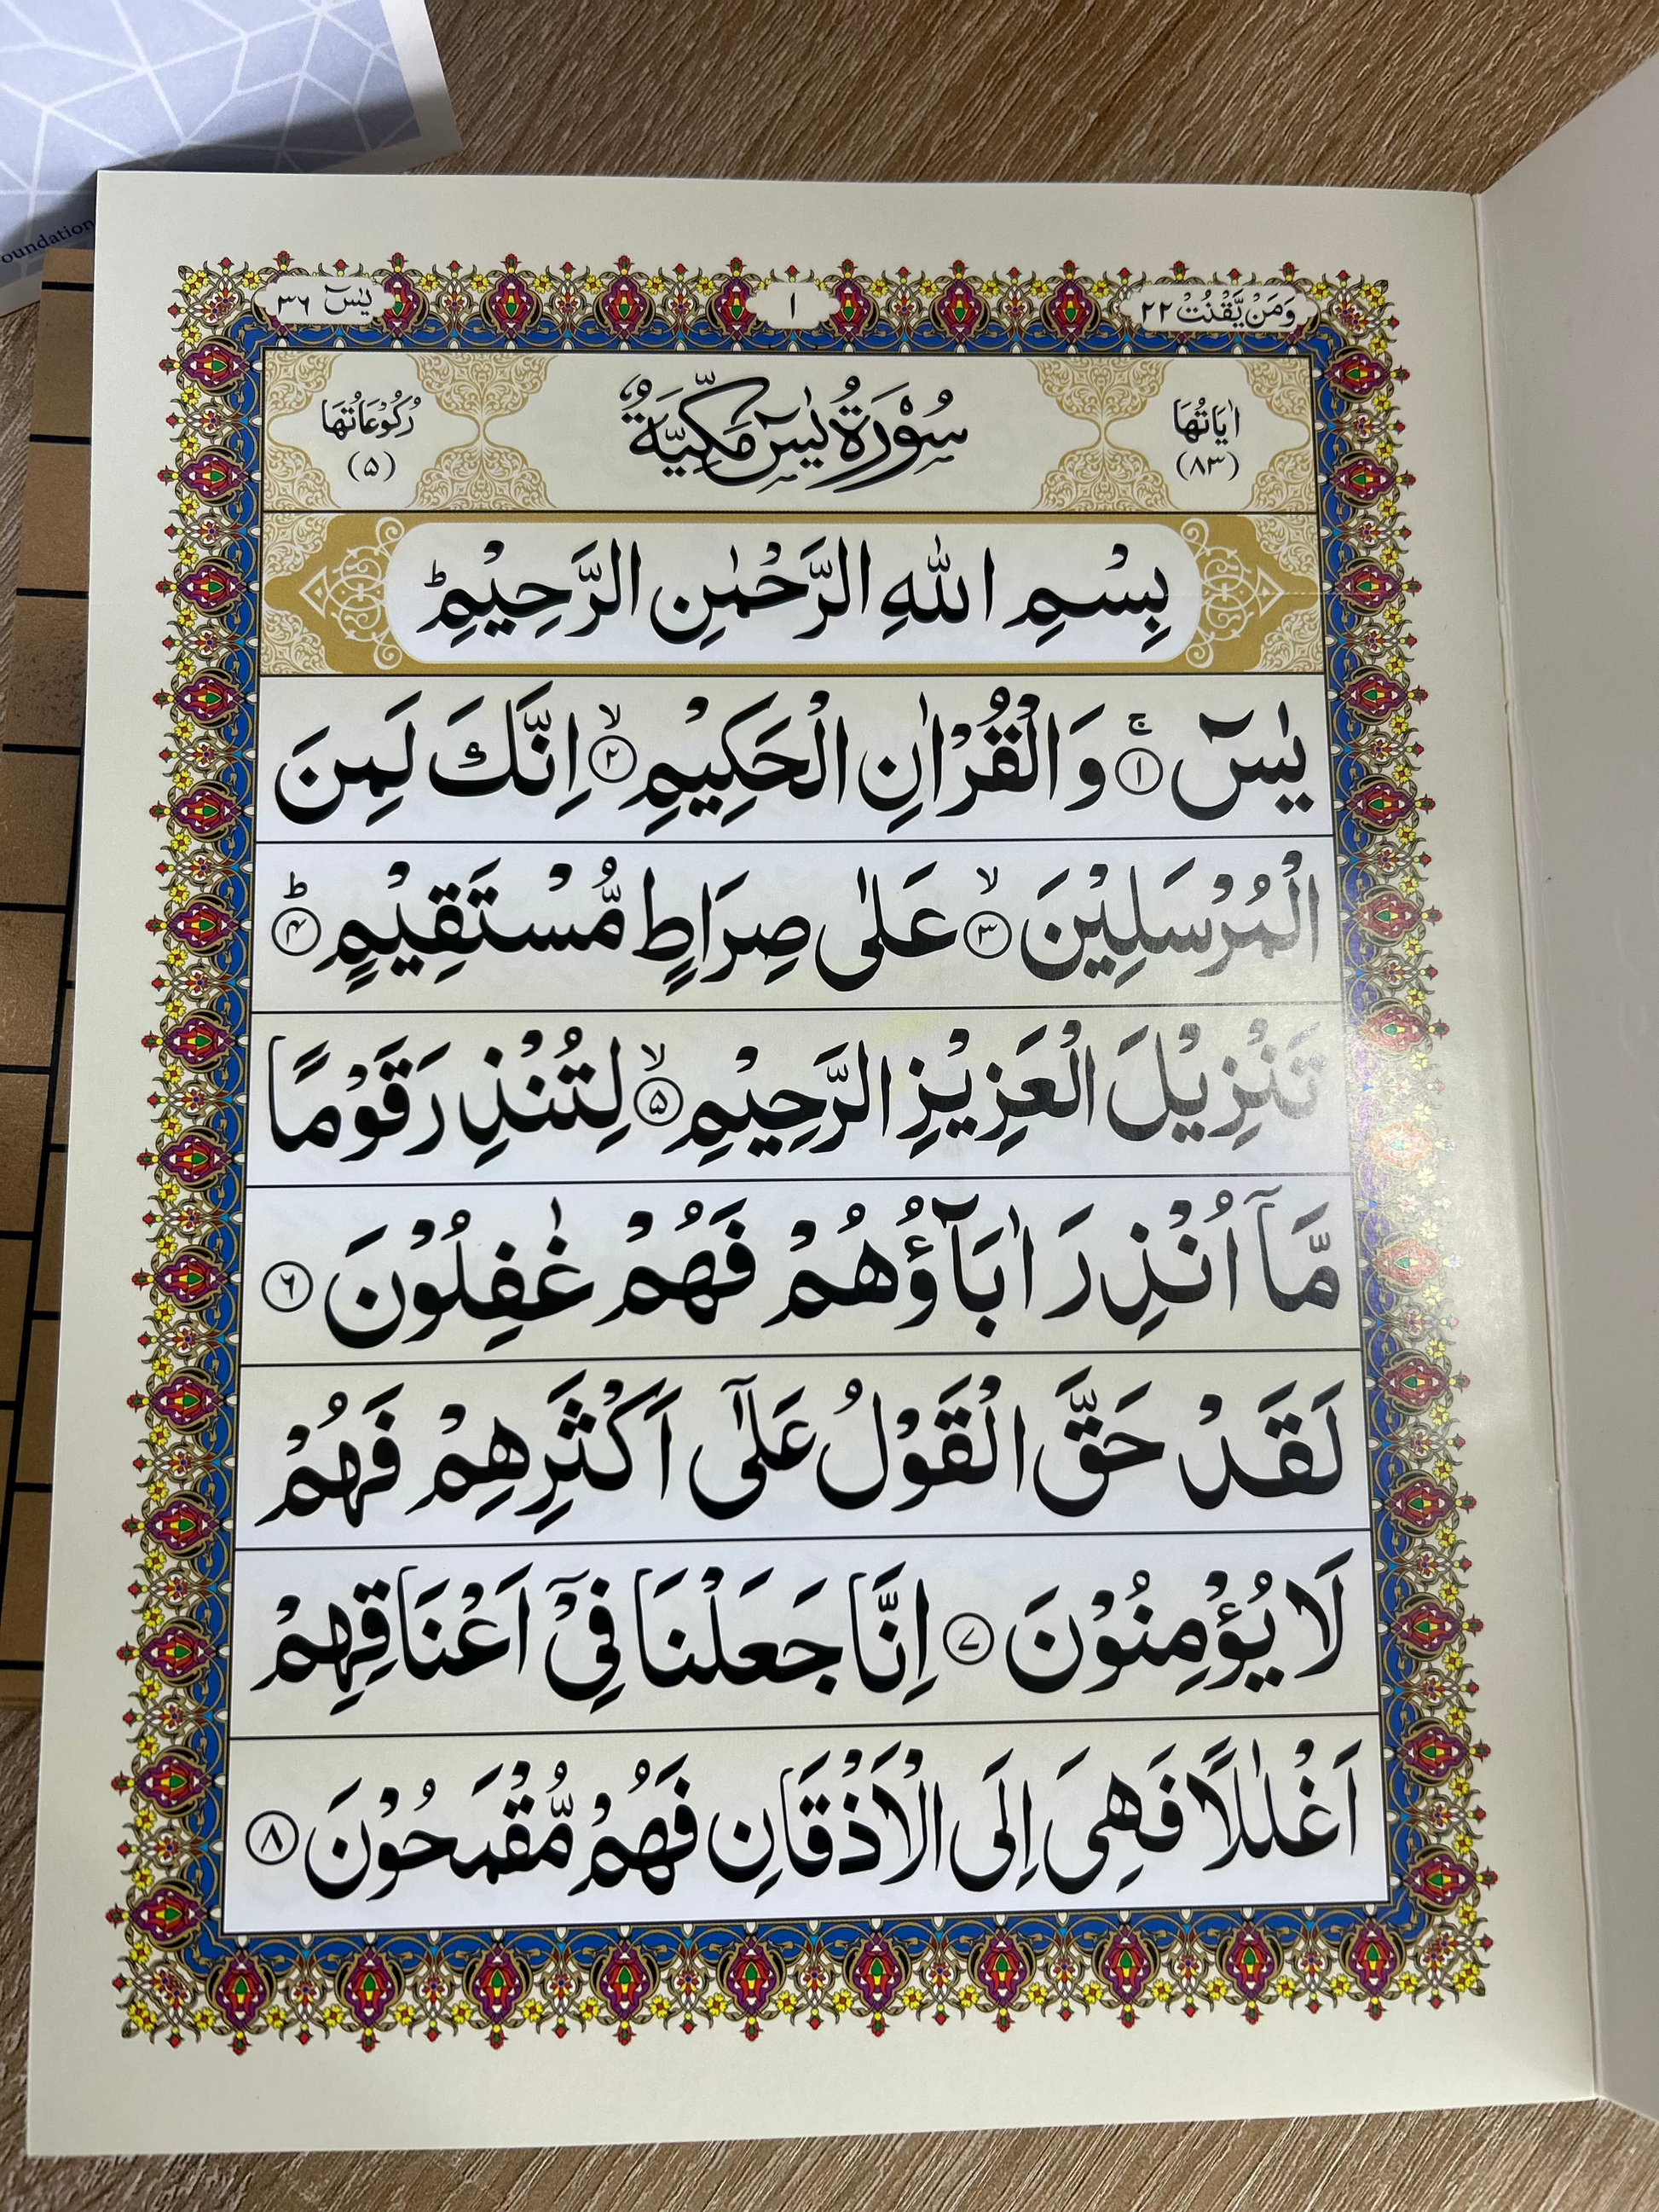 oundation
وَمَنْ يَّقْنُتْ ٢٢
١
يٰسٓ ٣٦
اٰيَاتُهَا
(٨٣)
سُوْرَةُ يٰسٓ مَكِّيَّةٌ
رُكُوْعَاتُهَا
(۵)
بِسْمِ اللّٰهِ الرَّحْمٰنِ الرَّحِيْمِ ؕ
يٰسٓ ۚ ① وَالْقُرْاٰنِ الْحَكِيْمِ ۙ ② اِنَّكَ لَمِنَ
الْمُرْسَلِيْنَ ۙ ③ عَلٰى صِرَاطٍ مُّسْتَقِيْمٍ ؕ ④
تَنْزِيْلَ الْعَزِيْزِ الرَّحِيْمِ ۙ ⑤ لِتُنْذِرَ قَوْمًا
مَّآ اُنْذِرَ اٰبَآؤُهُمْ فَهُمْ غٰفِلُوْنَ ⑥
لَقَدْ حَقَّ الْقَوْلُ عَلٰٓى اَكْثَرِهِمْ فَهُمْ
لَا يُؤْمِنُوْنَ ⑦ اِنَّا جَعَلْنَا فِىْٓ اَعْنَاقِهِمْ
اَغْلٰلًا فَهِىَ اِلَى الْاَذْقَانِ فَهُمْ مُّقْمَحُوْنَ ⑧